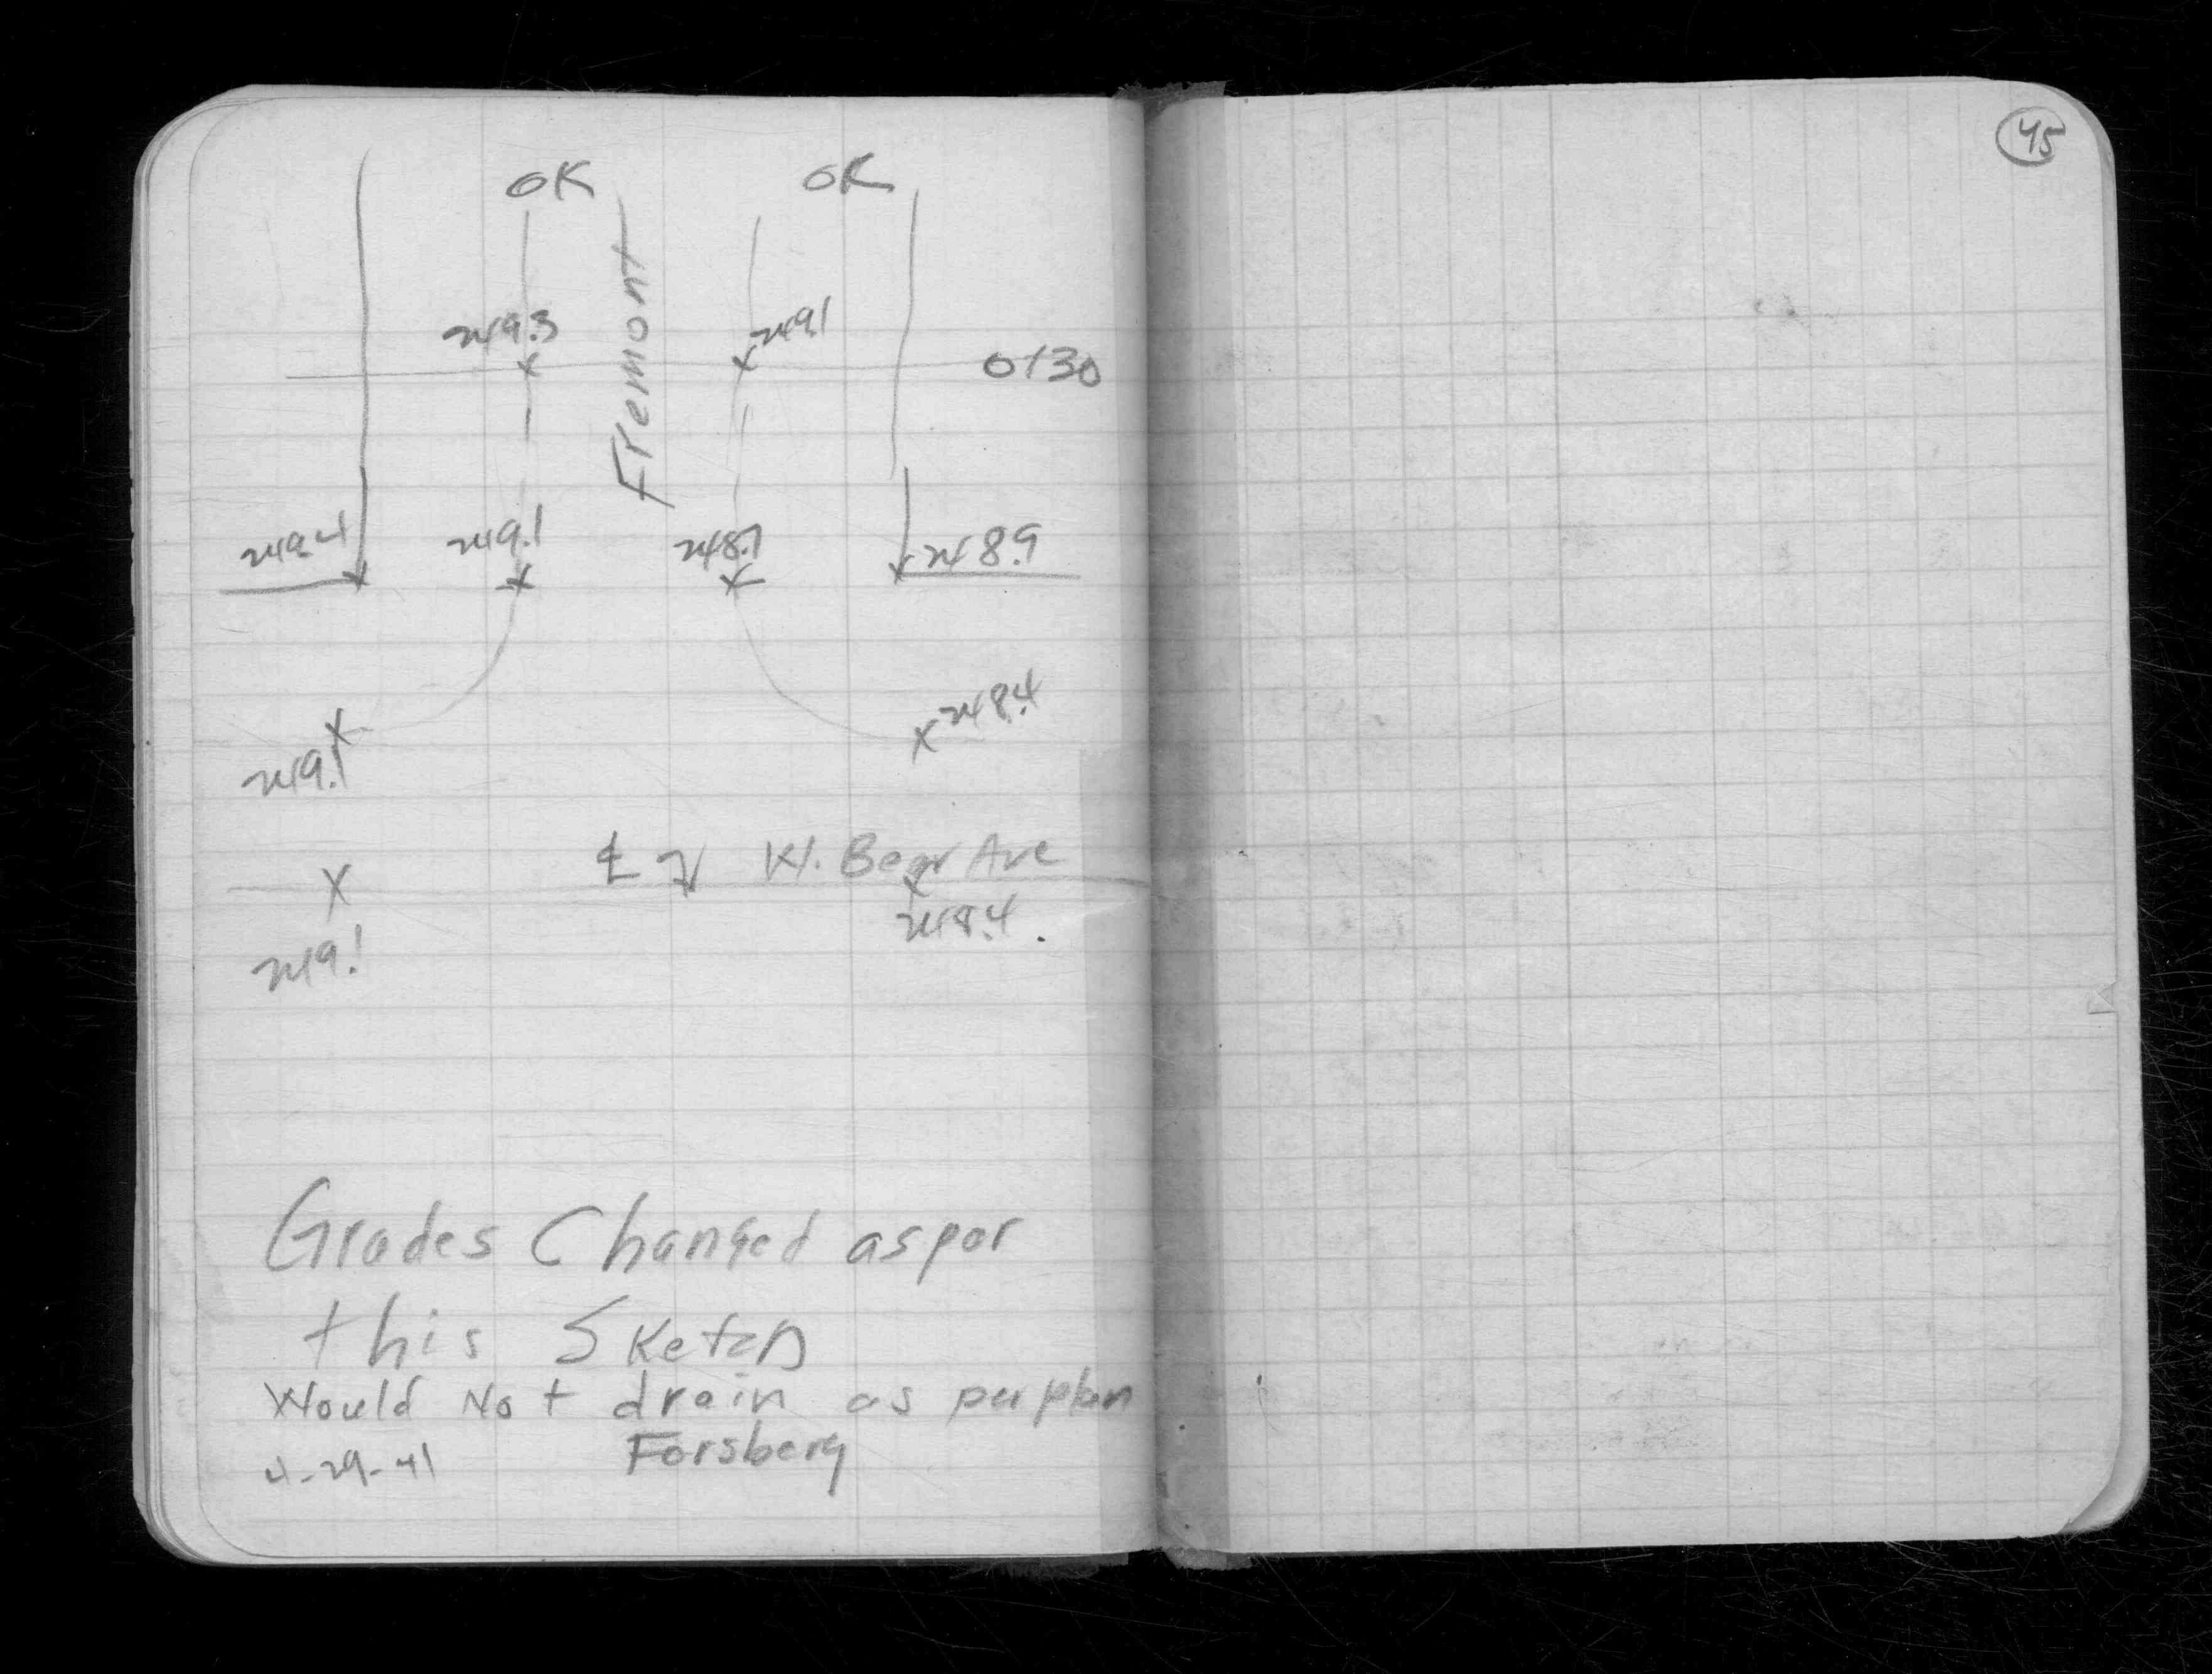 45
OK OK
249.3 249.1
Fremont
0+30
249.4 249.1 248.7 248.9
248.4
249.1
℄ W. Bear Ave
248.4
249.1
Grades Changed as per
this Sketch
Would Not drain as per plan
4-29-41 Forsberg